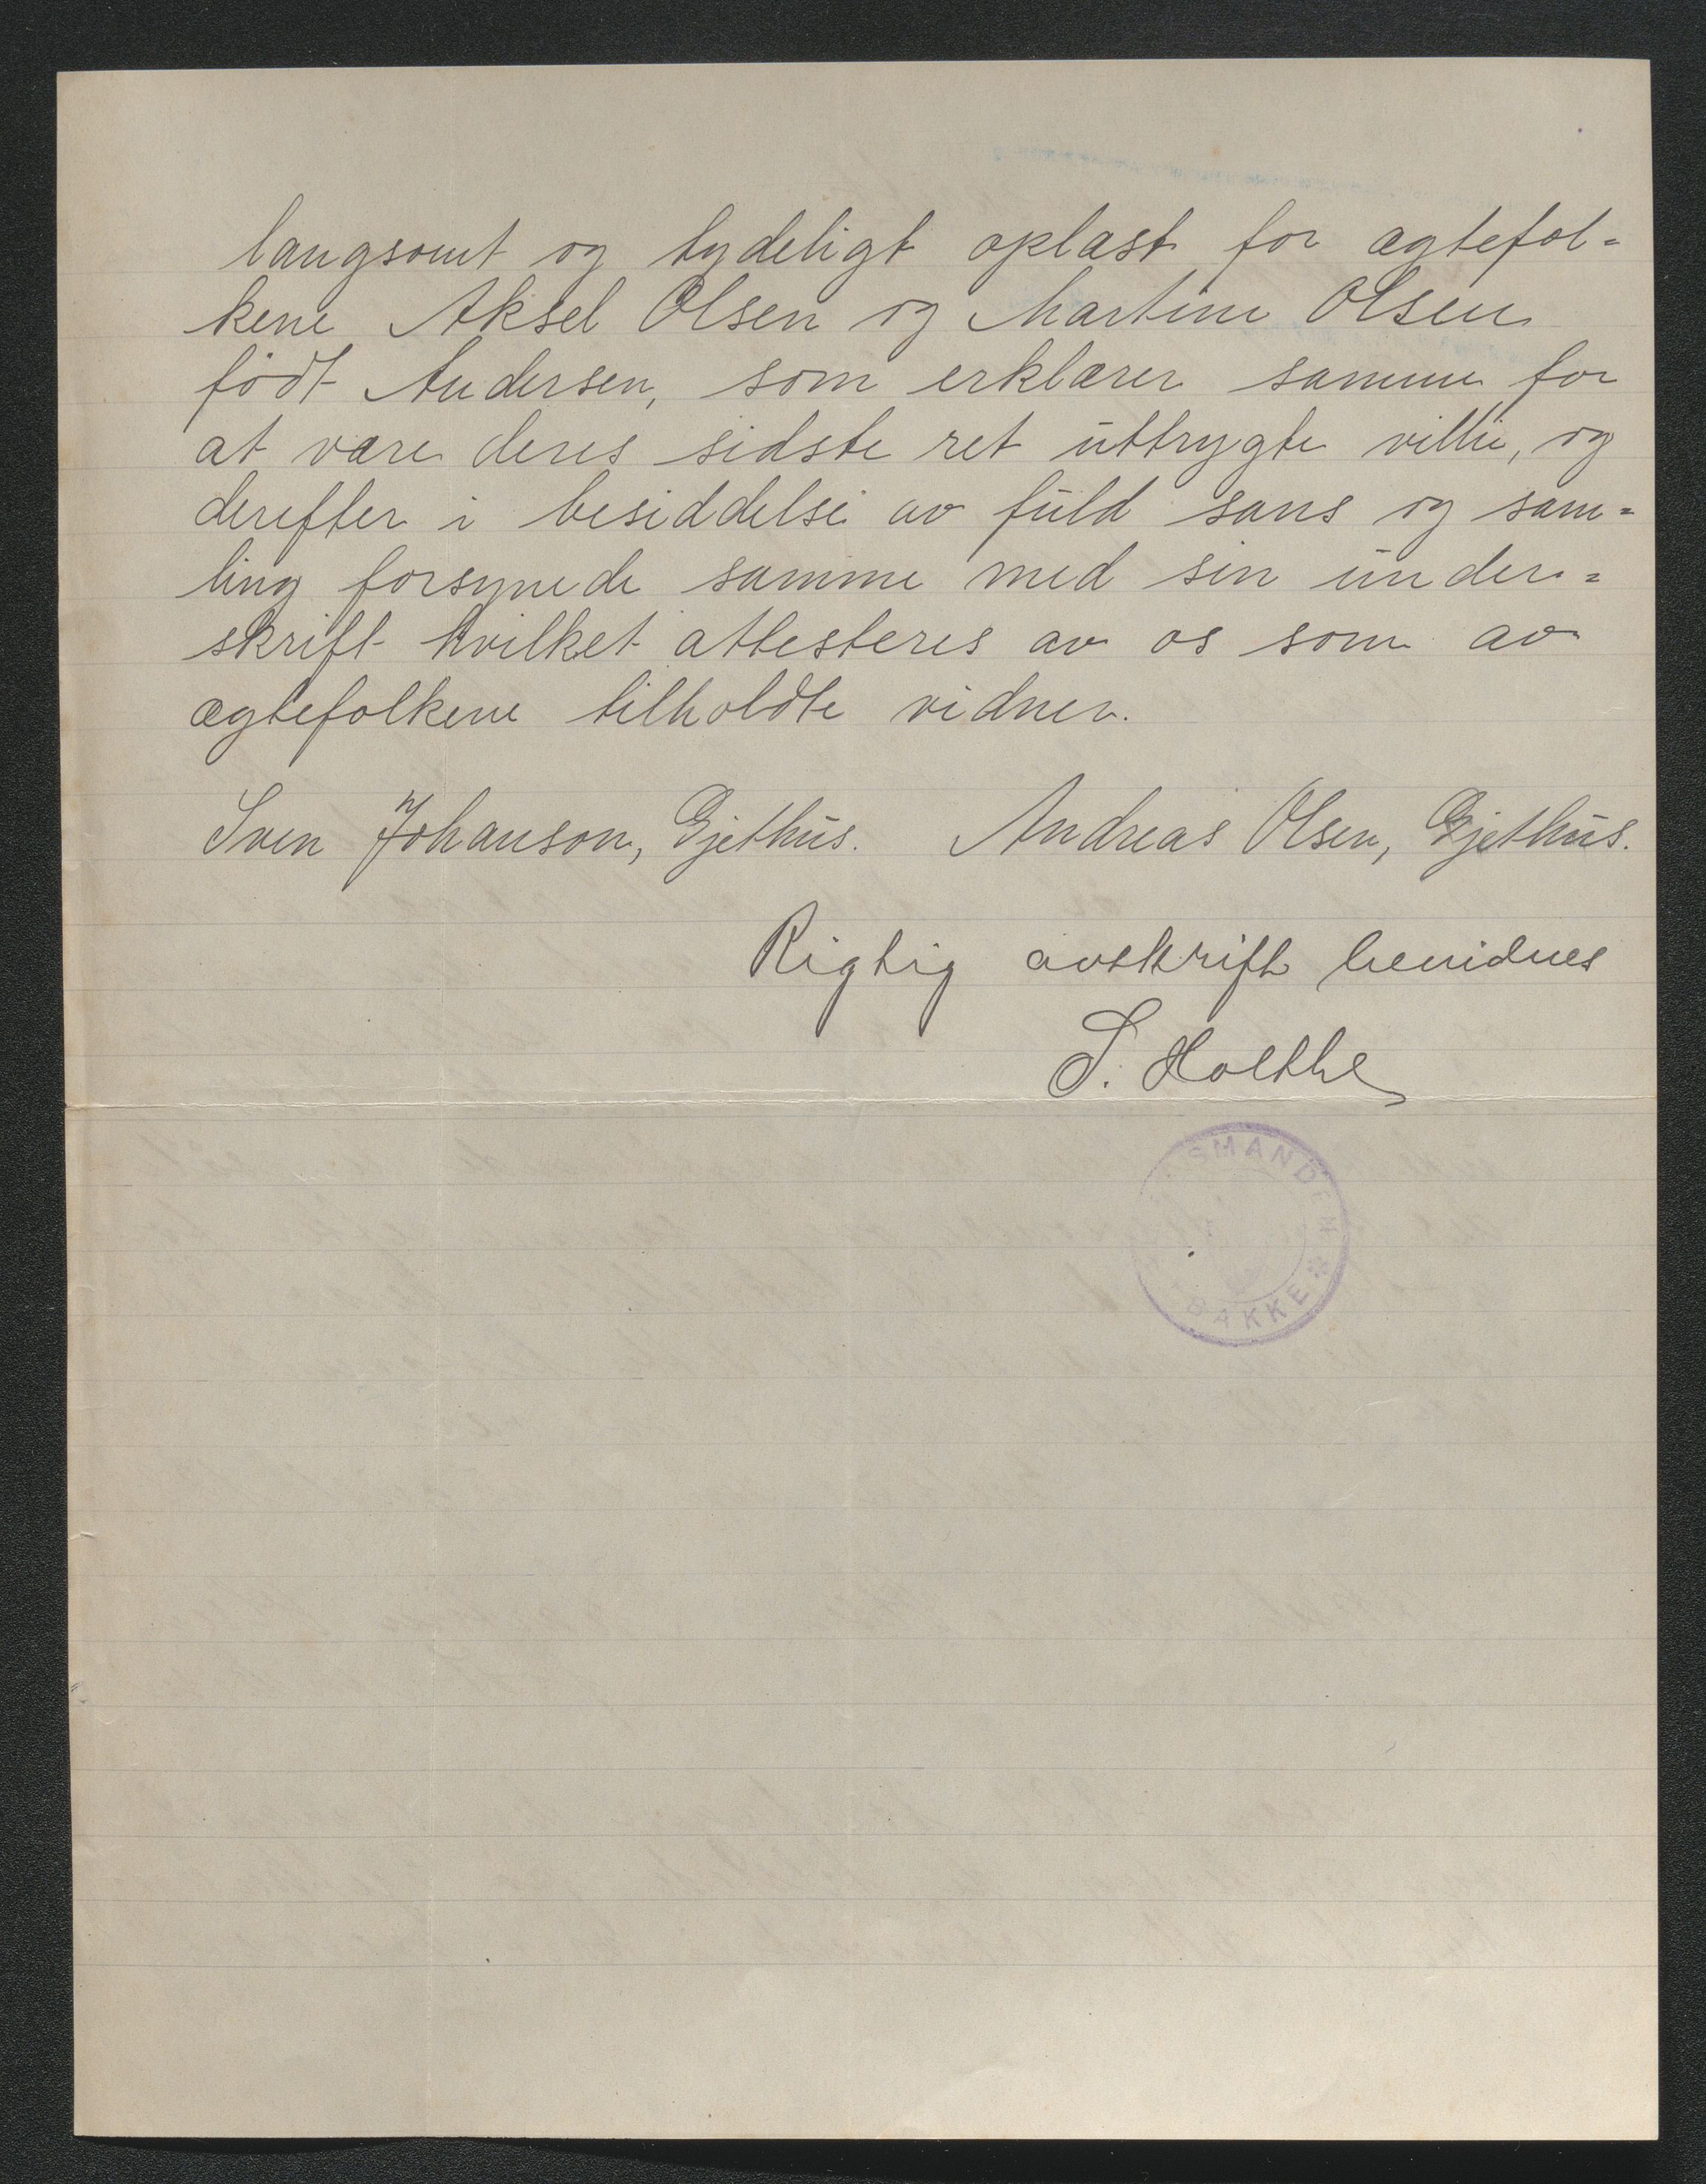 langsomt og tydeligt oplæst for ægtefol=
kene Aksel Olsen og Martine Olsen
født Andersen, som erklærer samme for
at være deres sidste ret uttrygte villie, og
derefter i besiddelse av fuld sans og sam=
ling forsynede samme med sin under=
skrift hvilket attesteres av os som av
ægtefolkene tilholdte vidner.
Sven Johanson, Gjethus. Andreas Olsen, Gjethus.
Rigtig avskrift bevidnes
S. Holthe
SMANDEN
BAKKE